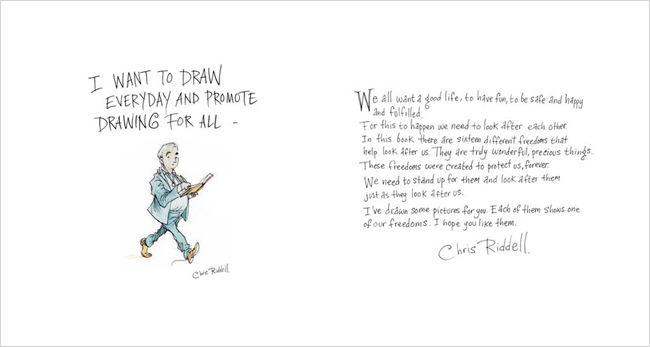 I WANT TO DRAW
EVERYDAY AND PROMOTE
DRAWING FOR ALL -
Chris Riddell.
We all want a good life, to have fun, to be safe and happy
and fulfilled.
For this to happen we need to look after each other.
In this book there are sixteen different freedoms that
help look after us. They are truly wonderful, precious things.
These freedoms were created to protect us, forever.
We need to stand up for them and look after them
just as they look after us.
I've drawn some pictures for you. Each of them shows one
of our freedoms. I hope you like them.
Chris Riddell.